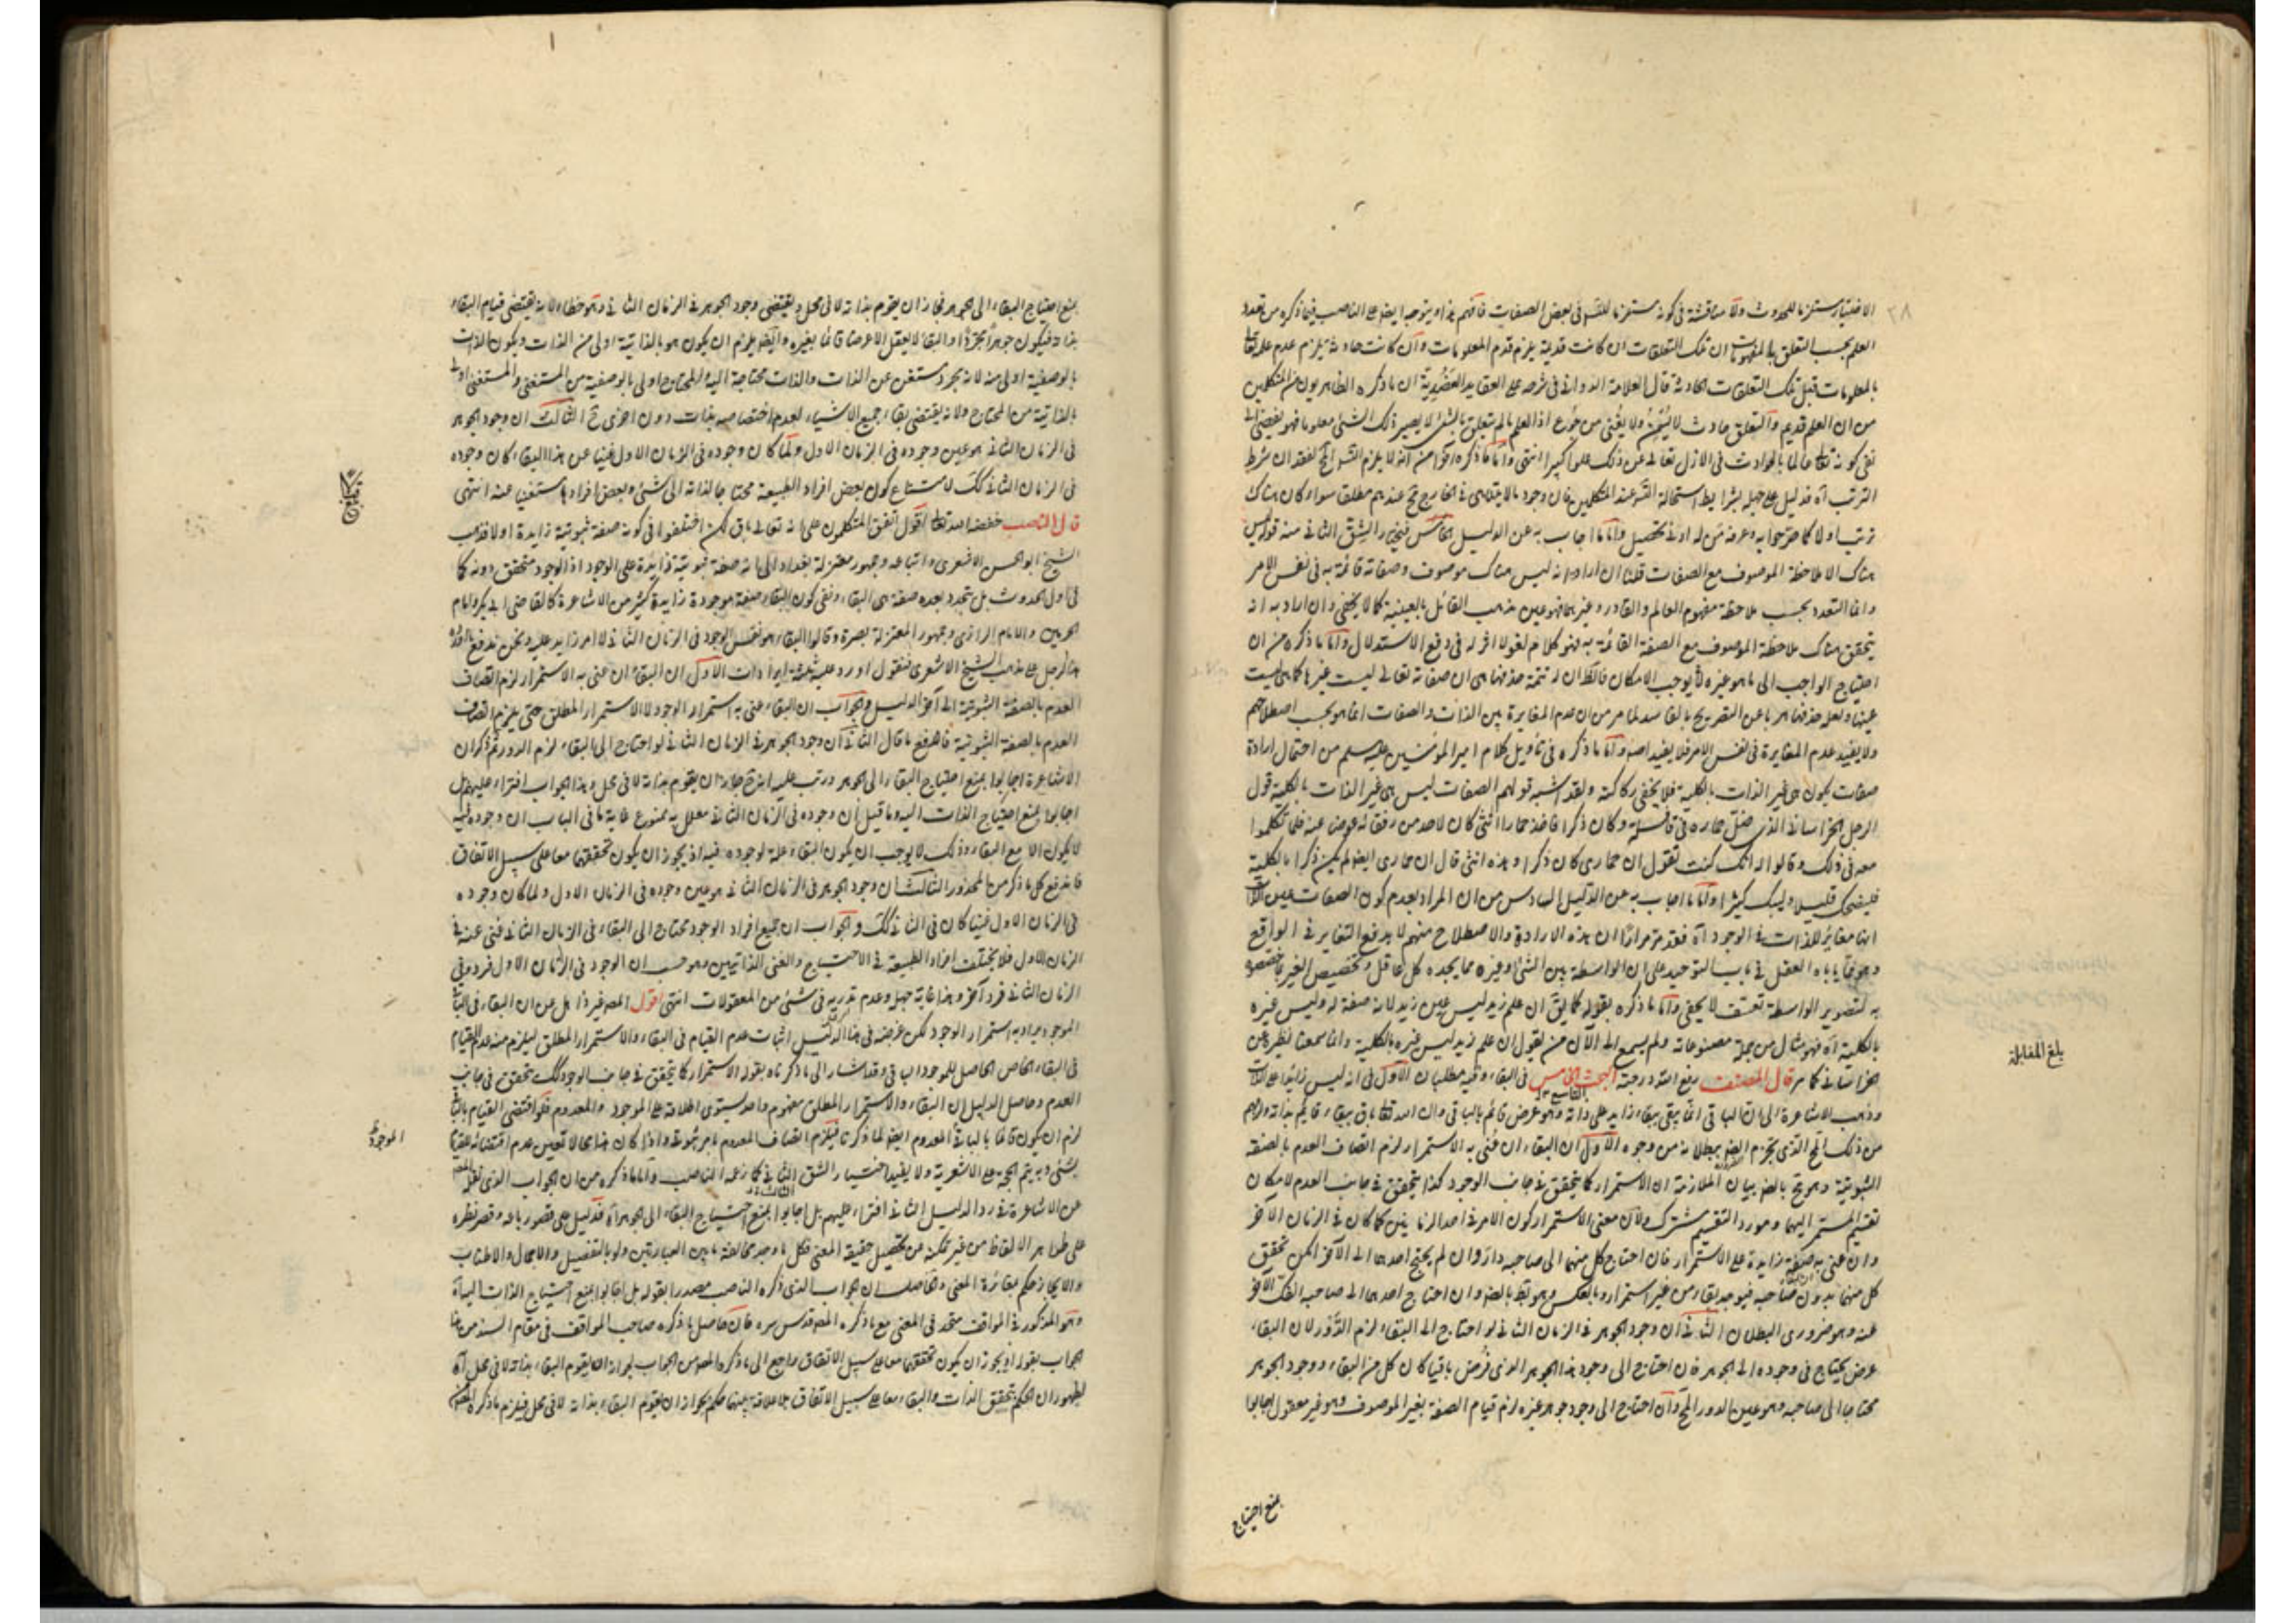 ٣٨
الاختيار مستلزما للحدوث ولا مناقشة في كونه مستلزما للنقص في بعض الصفات فافهم هذا ويتوجه ايضا على الناصب فيما ذكره من تعدد
العلم بحسب التعلق بالمفهومات ان تلك التعلقات ان كانت قديمة يلزم قدم المعلومات وان كانت حادثة يلزم عدم علمه تعالى
بالمعلومات قبل تلك التعلقات الحادثة قال العلامة الدواني في شرحه على العقايد العضدية ان ما ذكره الظاهريون من المتكلمين
من ان العلم قديم والتعلق حادث لا يسمن ولا يغني من جوع اذ العلم ما لم يتعلق بالشئ لا يصير ذلك الشئ معلوما فهو يفضي الى
نفي كونه تعالى عالما بالحوادث في الازل تعالى عن ذلك علوا كبيرا انتهى واما ما ذكره آخرا من انه لا يلزم التس الخ لفقدان شرط
الترتب آه فدليل على جهله بشرايط استحالة التس عند المتكلمين فان وجود ما لا يتناهى في الخارج مح عندهم مطلقا سواء كان هناك
ترتب اولا كما صرحوا به وعرفه من له ادنى تحصيل واما ما اجاب به عن الدليل الخامس فنختار الشق الثاني منه قوله ليس
هناك الا ملاحظة الموصوف مع الصفات قلنا ان اراد انه ليس هناك موصوف وصفاته قائمة به في نفس الامر
وانما التعدد بحسب ملاحظة مفهوم العالم والقادر وغيرهما فهو عين مذهب القائل بالعينية كما لا يخفى وان اراد به انه
يتحقق هناك ملاحظة الموصوف مع الصفة القائمة به فهو كلام لغو لا اثر له في دفع الاستدلال واما ما ذكره من ان
احتياج الواجب الى ما هو غيره يوجب الامكان فالظ ان له تتمة حذفها هي ان صفاته تعالى ليست غيرها كما هي ليست
عينها ولعله حذفها هربا عن التصريح بالفاسد لما مر من ان عدم المغايرة بين الذات والصفات انما هو بحسب اصطلاحهم
ولا يفيد عدم المغايرة في نفس الامر فلا يفيد اصلا واما ما ذكره في تأويل كلام امير المؤمنين عليه سلم من احتمال ارادة
صفات يكون هي غير الذات بالكلية فلا يخفى ركاكته ولقد اشبه قولهم الصفات ليس هي غير الذات بالكلية قول
الرجل الخراساني الذي ضل حماره في قافلة وكان ذكرا فاخذ حمارا انثى كان لاحد من رفقائه عوضا عنه فلما تكلموا
معه في ذلك وقالوا له انك كنت تقول ان حماري كان ذكرا وهذه انثى قال ان حماري ايضا لم يكن ذكرا بالكلية
فليضحك قليلا وليبك كثيرا واما ما اجاب به عن الدليل السادس من ان المراد بعدم كون الصفات عين الذات
انها مغايرة للذات في الوجود آه فقد مر مرارا ان هذه الارادة والاصطلاح منهم لا يدفع التغاير في الواقع
وهو مما ياباه العقل في باب التوحيد على ان الواسطة بين الشئ وغيره مما يجده كل عاقل وتخصيص الغير بما خصصوه
به لتصوير الواسطة تعسف لا يخفى واما ما ذكره بقوله كما يق ان علم زيد ليس عين زيد لانه صفة له وليس غيره
بالكلية آه فهو مثال من جملة مصنوعاته ولم يسمع الى الآن من يقول ان علم زيد ليس غيره بالكلية وانما سمعنا نظيره عن
الخراساني كما مر قال المصنف رفع الله درجته المبحث الخامس في البقاء وفيه مطلبان الاول في انه ليس زايدا على الذات
وذهب الاشاعرة الى ان الباقي انما يبقى ببقاء زايد على ذاته وهو عرض قائم بالباقي وان الله تعالى باق ببقاء قايم بذاته ولزمهم
من ذلك المح الذي يجزم العقل ببطلانه من وجوه الاول ان البقاء ان عني به الاستمرار لزم اتصاف العدم بالصفة
الثبوتية وهو مح بالضرورة بيان الملازمة ان الاستمرار كما يتحقق في جانب الوجود كذا يتحقق في جانب العدم لامكان
تقسيم المستمر اليهما ومورد التقسيم مشترك ولان معنى الاستمرار كون الامر في احد الزمانين كما كان في الزمان الآخر
وان عني به صفة زايدة على الاستمرار فان احتاج كل منهما الى صاحبه دار وان لم يحتج احدهما الى الآخر امكن تحقق
كل منهما بدون صاحبه فيوجد بقاء من غير استمرار وبالعكس وهو بط بالضرورة وان احتاج احدهما الى صاحبه انفك الآخر
عنه وهو ضروري البطلان الثاني ان وجود الجوهر في الزمان الثاني لو احتاج الى البقاء لزم الدور لان البقاء
عرض يحتاج في وجوده الى الجوهر فان احتاج الى وجود هذا الجوهر الذي فرض باقيا كان كل من البقاء ووجود الجوهر
محتاجا الى صاحبه وهو عين الدور المح وان احتاج الى وجود جوهر غيره لزم قيام الصفة بغير الموصوف وهو غير معقول اجابوا
بمنع احتياج
بلغ المقابلة
بمنع احتياج البقاء الى الجوهر فجاز ان يقوم بذاته لا في محل ويقتضي وجود الجوهر في الزمان الثاني وهو خطاء لانه يقتضي قيام البقاء
بذاته فيكون جوهرا مجردا والبقاء لا يعقل الا عرضا قائما بغيره وايضا يلزم ان يكون هو بالذاتية اولى من الذات ويكون الذات
بالوصفية اولى منه لانه مجرد مستغن عن الذات والذات محتاجة اليه والمحتاج اولى بالوصفية من المستغني والمستغني اولى
بالذاتية من المحتاج ولانه يقتضي بقاء جميع الاشياء لعدم اختصاصه بذات دون اخرى مح الثالث ان وجود الجوهر
في الزمان الثاني هو عين وجوده في الزمان الاول ولما كان وجوده في الزمان الاول غنيا عن هذا البقاء كان وجوده
في الزمان الثاني كك لامتناع كون بعض افراد الطبيعة محتاجا لذاته الى شئ وبعض افرادها مستغنيا عنه انتهى
قال الناصب خفضه الله تعالى اقول اتفق المتكلمون على انه تعالى باق لكن اختلفوا في كونه صفة ثبوتية زايدة اولا فذهب
الشيخ ابو الحسن الاشعري واتباعه وجمهور معتزلة بغداد الى انه صفة ثبوتية زايدة على الوجود اذ الوجود متحقق دونه كما
في اول الحدوث بل يتجدد بعده صفة هي البقاء ونفى كون البقاء صفة موجودة زايدة كثير من الاشاعرة كالقاضي ابي بكر وامام
الحرمين والامام الرازي وجمهور المعتزلة بصرة وقالوا البقاء هو نفس الوجود في الزمان الثاني لا امر زايد عليه ونحن ندفع ما اورده
هذا الرجل على مذهب الشيخ الاشعري فنقول اورد عليه ثلثة ايرادات الاول ان البقاء ان عني به الاستمرار لزم اتصاف
العدم بالصفة الثبوتية الى آخر الدليل والجواب ان البقاء عني به استمرار الوجود لا الاستمرار المطلق حتى يلزم اتصاف
العدم بالصفة الثبوتية فاندفع ما قال الثاني ان وجود الجوهر في الزمان الثاني لو احتاج الى البقاء لزم الدور ثم ذكر ان
الاشاعرة اجابوا بمنع احتياج البقاء الى الجوهر ورتب عليه انه ح جاز ان يقوم بذاته لا في محل وهذا الجواب افتراء عليهم بل
اجابوا بمنع احتياج الذات اليه وما قيل ان وجوده في الزمان الثاني معلل به ممنوع غاية ما في الباب ان وجوده فيه
لا يكون الا مع البقاء وذلك لا يوجب ان يكون البقاء علة لوجوده فيه اذ يجوز ان يكون تحققهما معا على سبيل الاتفاق
فاندفع كل ما ذكر من المحذور الثالث ان وجود الجوهر في الزمان الثاني هو عين وجوده في الزمان الاول ولما كان وجوده
في الزمان الاول غنيا كان في الثاني كك والجواب ان جميع افراد الوجود محتاج الى البقاء في الزمان الثاني غني عنه في
الزمان الاول فلا يختلف افراد الطبيعة في الاحتياج والغنى الذاتيين وهو حسب ان الوجود في الزمان الاول فرد وفي
الزمان الثاني فرد آخر وهذا غاية جهل وعدم تدربه في شئ من المعقولات انتهى اقول المص غير ذاهل عن ان البقاء في الباقي
الموجود يراد به استمرار الوجود لكن غرضه في هذا الدليل اثبات عدم القيام في البقاء والاستمرار المطلق ليلزم منه عدم القيام
في البقاء الخاص الحاصل للموجود الباقي وقد اشار الى ما ذكرناه بقوله الاستمرار كما يتحقق في جانب الوجود كك يتحقق في جانب
العدم وحاصل الدليل ان البقاء والاستمرار المطلق مفهوم واحد يستوي اطلاقه على الموجود والمعدوم فلو اقتضى القيام بالباقي
لزم ان يكون قائما بالباقي المعدوم ايضا لما ذكرنا فيلزم اتصاف المعدوم بامر ثبوتي واذا كان هذا محالا تعين عدم اقتضائه للقيام
بشئ وبه يتم الحجة على الاشعرية ولا يفيد اختيار الشق الثاني كما زعمه الناصب واما ما ذكره من ان الجواب الذي نقله المص
عن الاشاعرة في رد الدليل الثاني افتراء عليهم بل اجابوا بمنع احتياج البقاء الى الجوهر آه فدليل على قصور باعه وقصر نظره
على ظواهر الالفاظ من غير تمكنه عن تحصيل حقيقة المعنى فكل ما وجد مخالفة ما بين العبارتين ولو بالتفصيل والاجمال والاطناب
والايجاز حكم بمغائرة المعنى والحاصل ان الجواب الذي ذكره الناصب مصدرا بقوله بل اجابوا بمنع احتياج الذات اليه آه
وهو المذكور في المواقف متحد في المعنى مع ما ذكره المص قدس سره فان حاصل ما ذكره صاحب المواقف في مقام السند من هذا
الجواب بقوله اذ يجوز ان يكون تحققهما معا على سبيل الاتفاق راجع الى ما ذكره المص من الجواب بجواز ان يقوم البقاء بذاته لا في محل آه
لظهور ان الحكم بتحقق الذات والبقاء معا على سبيل الاتفاق بلا علاقة بينهما حكم بجواز ان يقوم البقاء بذاته لا في محل فيلزم ما ذكره المص
الموجود